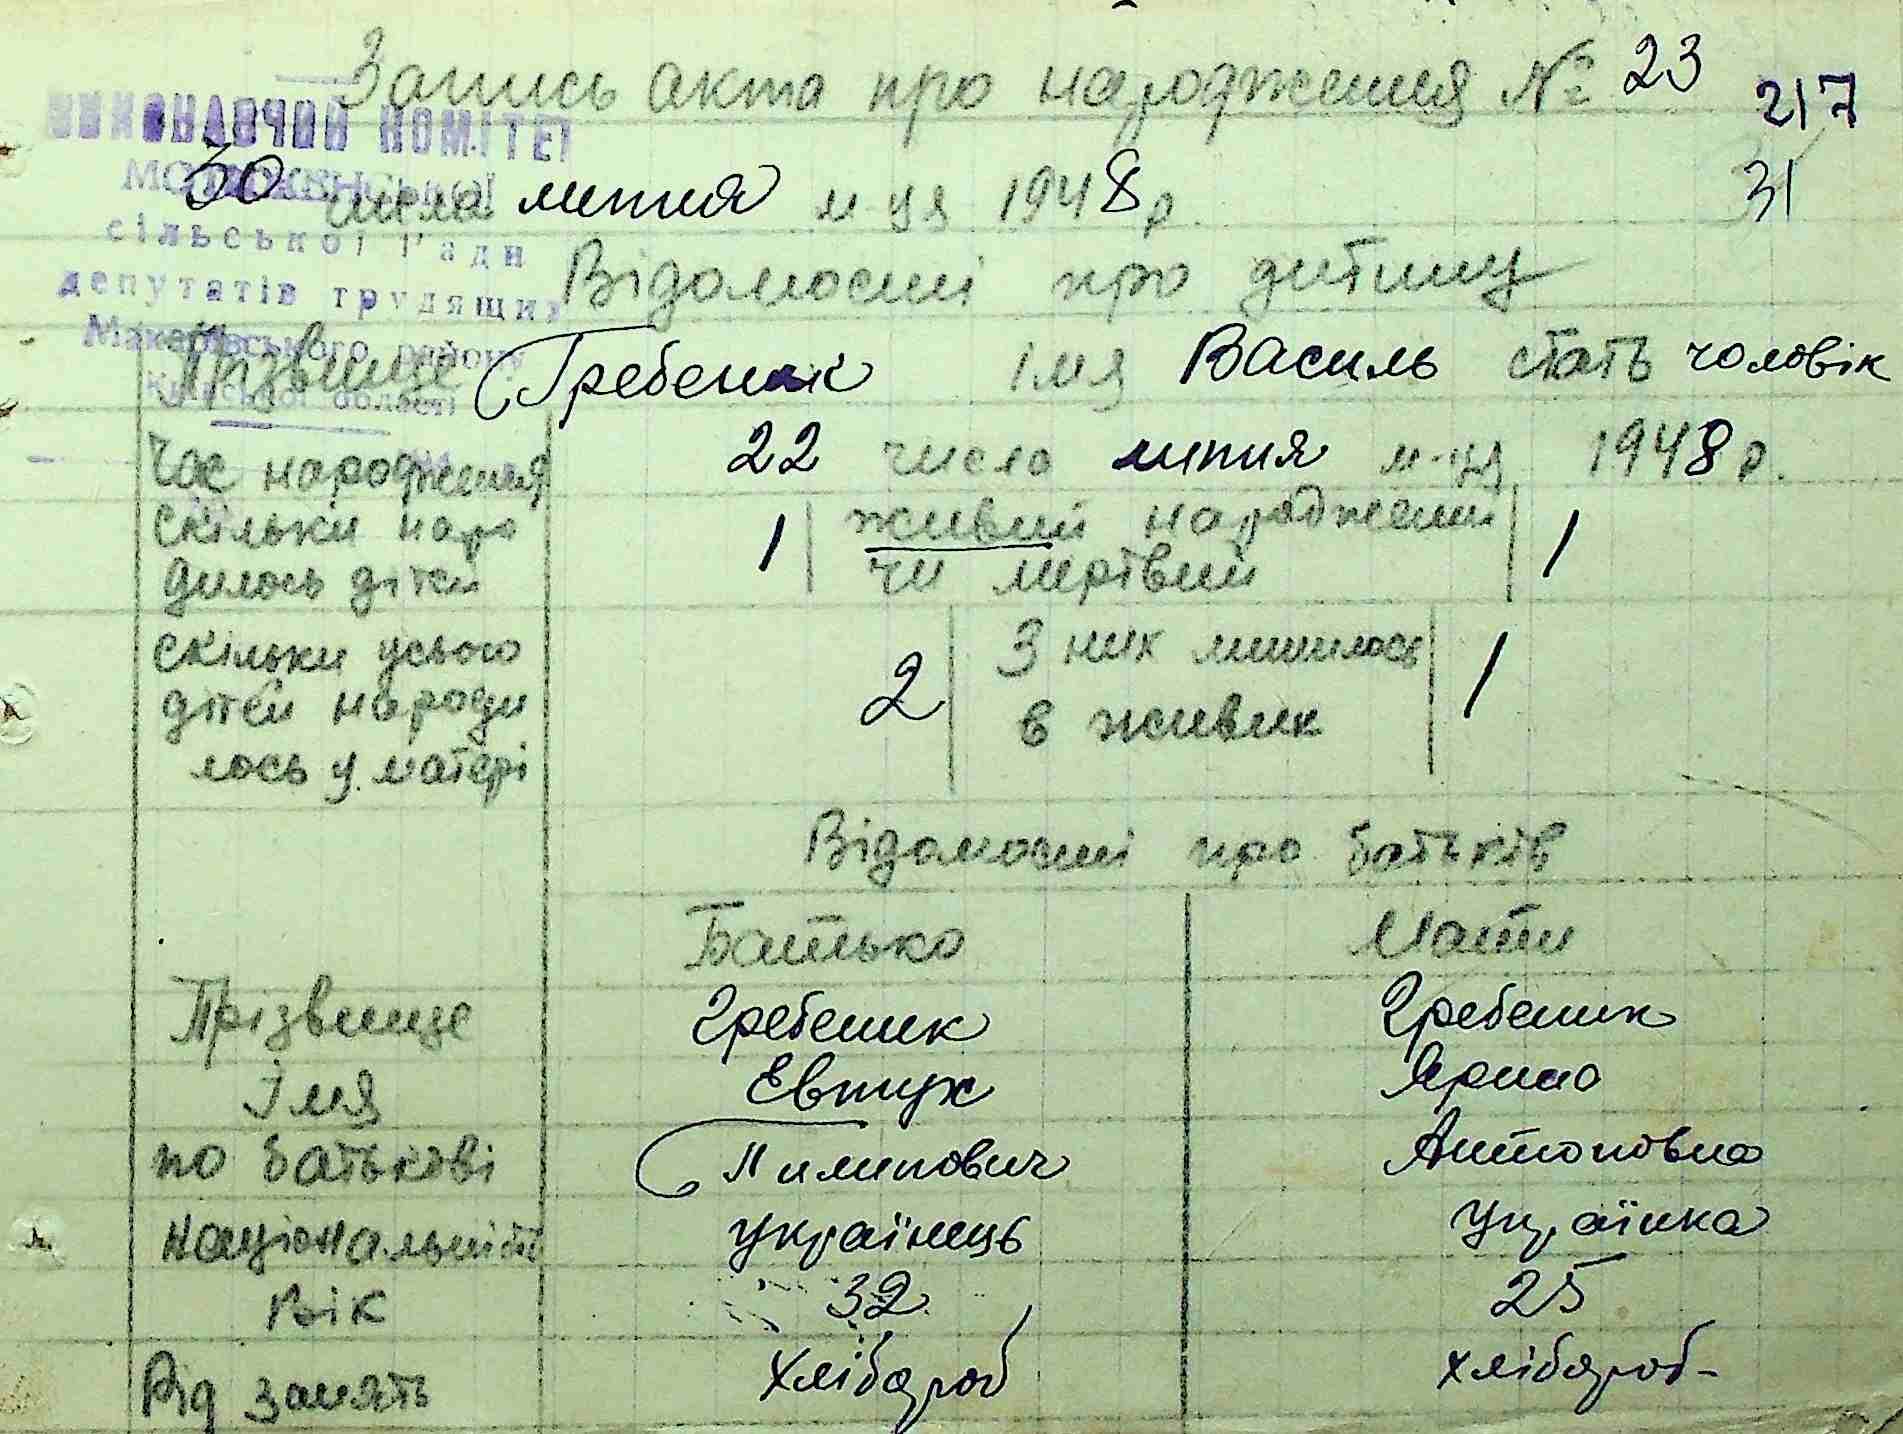 Запись акта про народження № 23
217
ВИКОНАВЧИЙ КОМІТЕТ
30 числа липня м-ця 1948 р.
31
сільської Ради
депутатів трудящих
Макарівського району
Київської області
Відомості про дитину
Прізвище Гребеник імя Василь стать чоловік
Час народження 22 число липня м-ця 1948 р.
скільки наро 1 живий народжений 1
дилось дітей чи мертвий
скільки усього 2 З них лишилось 1
дітей народи в живих
лось у матері
Відомості про батьків
Батько Мати
Прізвище Гребеник Гребеник
Імя Евтух Ярина
по батькові Пилипович Антоновна
національність українець українка
Вік 32 25
Рід занять хлібороб хлібороб-